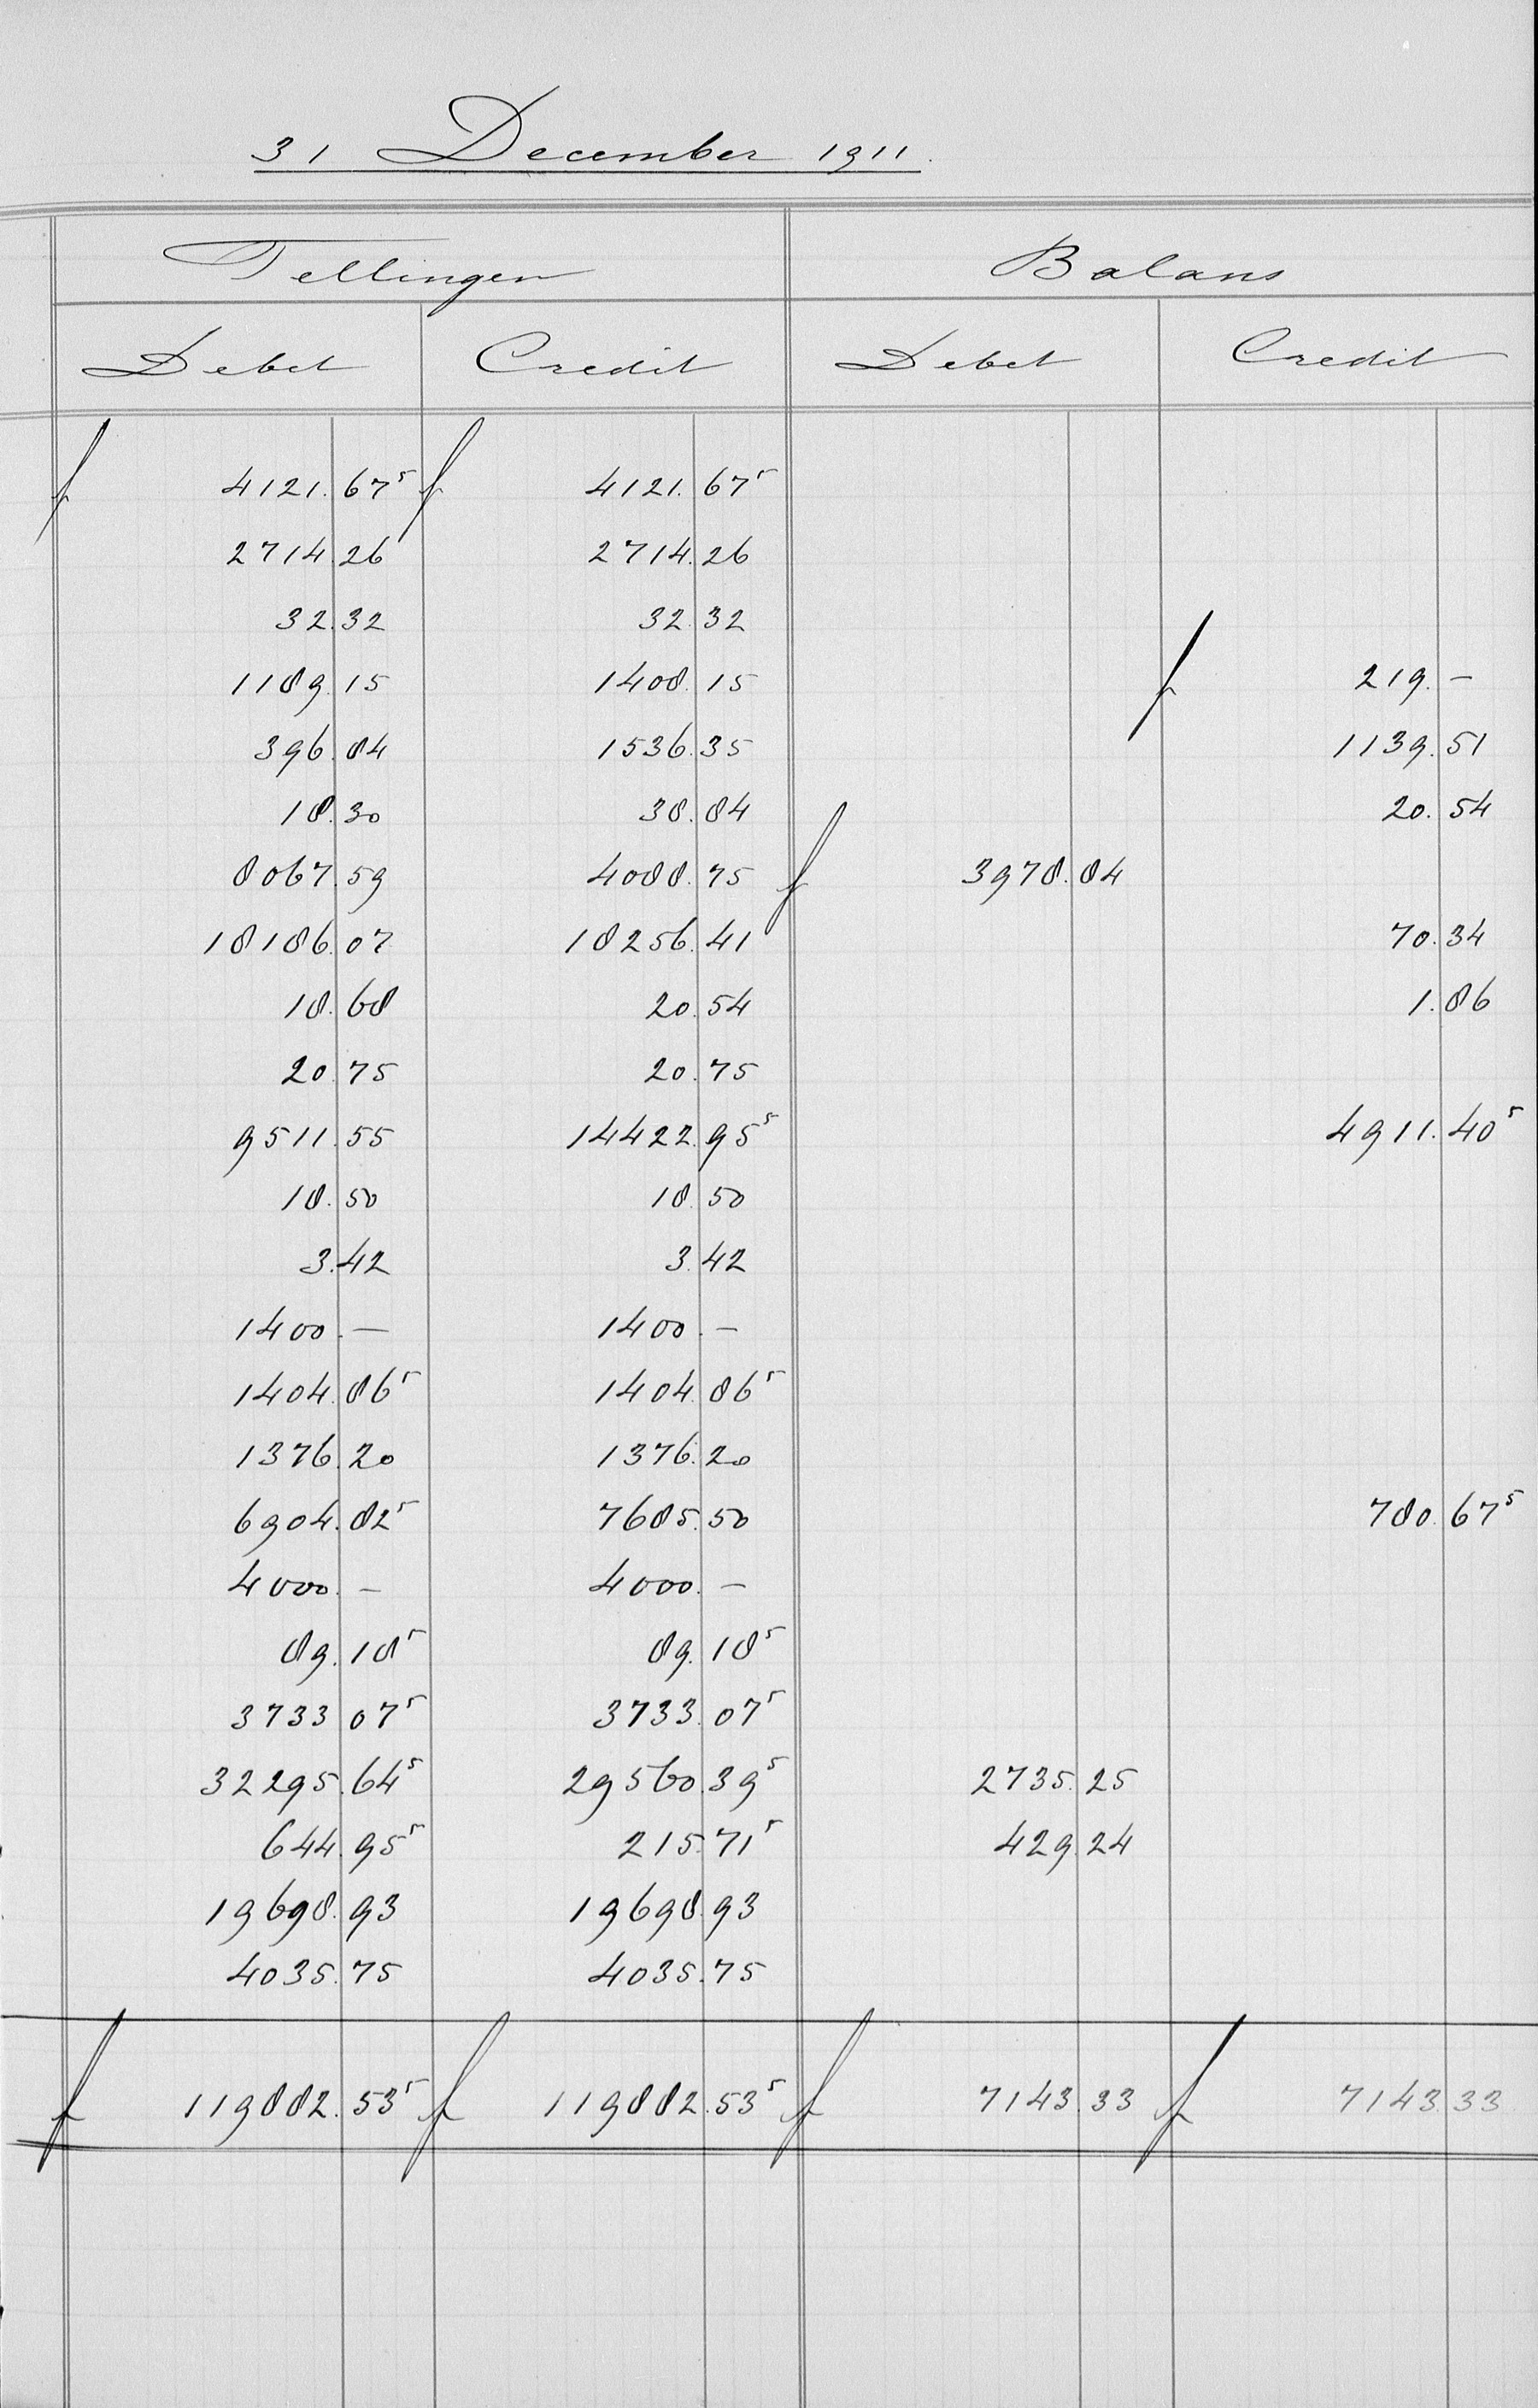 31 December 1911.
Tellingen Balans
Debet Credit Debet Credit
f 4121.67⁵ f 4121.67⁵
2714.26 2714.26
32.32 32.32
1189.15 1408.15 f 219.–
396.84 1536.35 1139.51
18.30 38.84 20.54
8067.59 4088.75 f 3978.84
18186.07 18256.41 70.34
18.68 20.54 1.86
20.75 20.75
9511.55 14422.95⁵ 4911.40⁵
18.50 18.50
3.42 3.42
1400.— 1400.–
1404.86⁵ 1404.86⁵
1376.20 1376.20
6904.82⁵ 7685.50 780.67⁵
4000.– 4000.–
89.18⁵ 89.18⁵
3733 07⁵ 3733.07⁵
32295.64⁵ 29560.39⁵ 2735.25
644.95⁵ 215.71⁵ 429.24
19698.93 19698.93
4035.75 4035.75
f 119882.53⁵ f 119882.53⁵ f 7143.33 f 7143.33